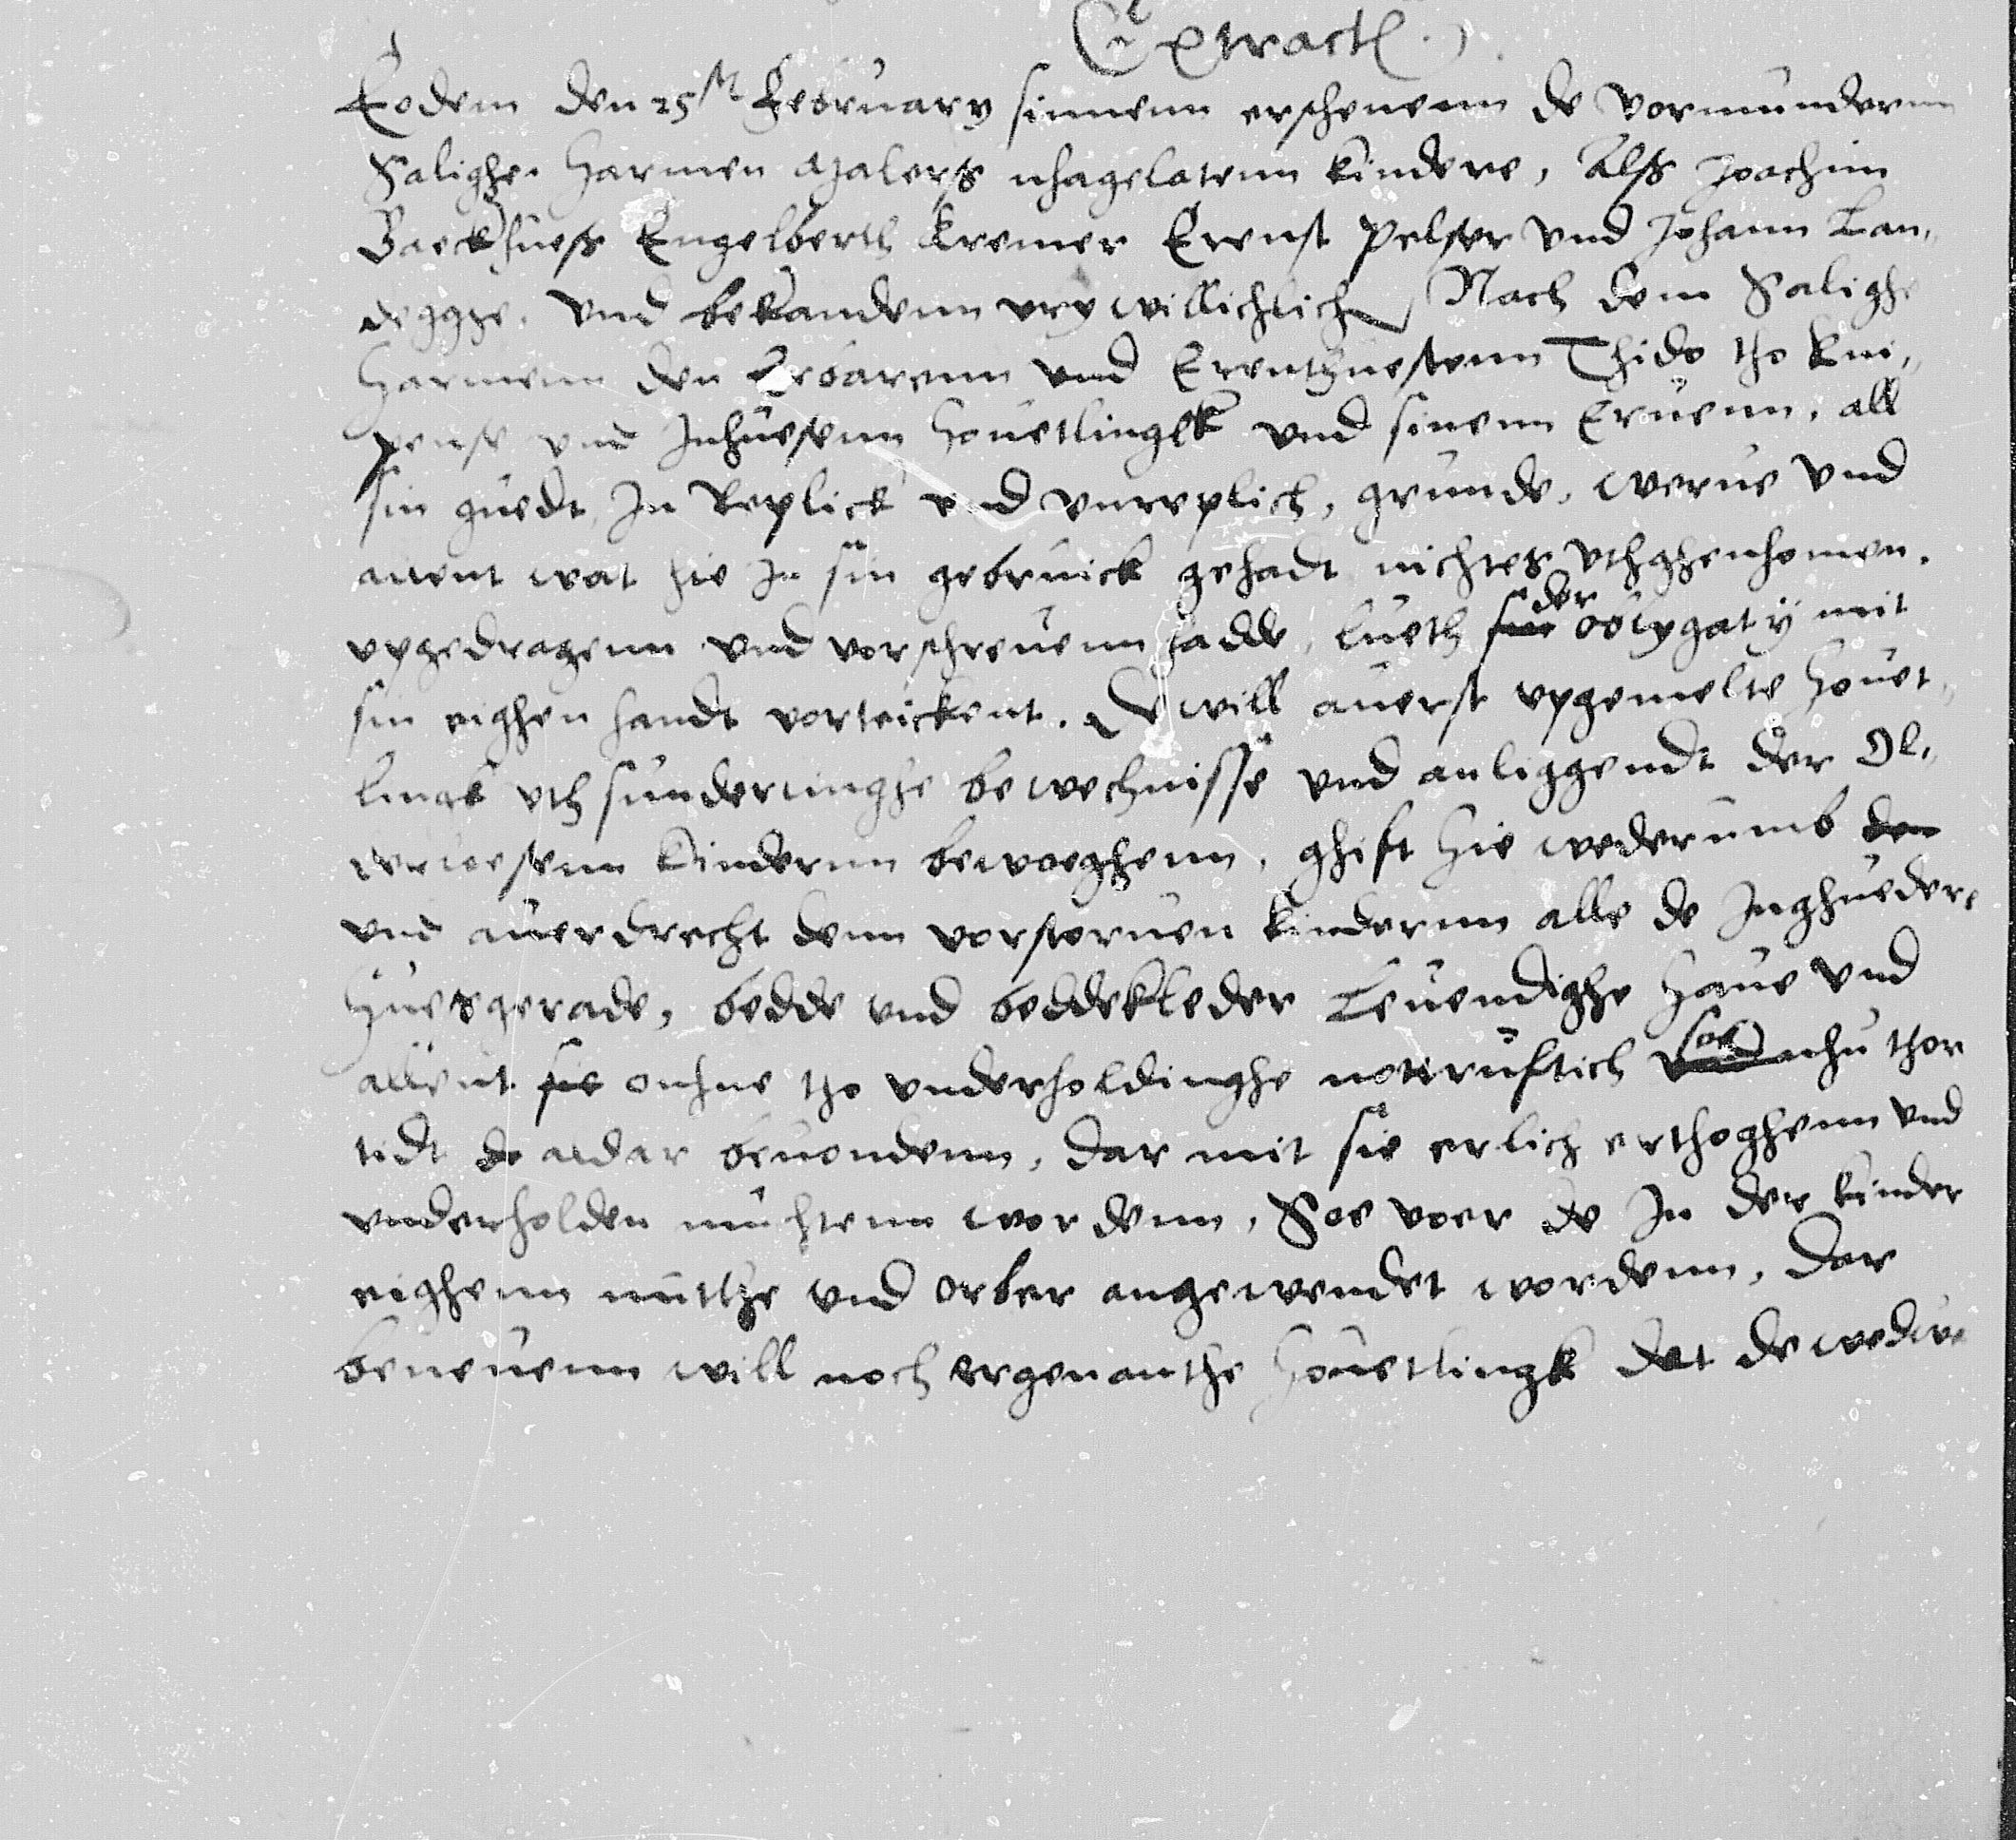 Extract.
Eodem den 25st February sinnenn erschenenn de vormunderenn
Salighe. Harmen Malers nhagelatenn kindere, Alss Joachim
Backhuess Engelberth Kremer Ernst Pelser vnd Johann Lan„
degghe. vnd bekandenn vrywillichlich, Nach dem Salighe
Harmenn den Erbarenn vnd Erenthuestenn Thido tho Kni„
pense vnd Inhusenn houetlingk vnd sinenn Eruenn, all
sin guedt, In Replick vnd vnreplich, grunde, werue vnd
allent wat hie In sin gebruick gehadt nichtes vthghenhomen.
vpgedragenn vnd vorschreuenn hadde, lueth der oblygaty mit
sin eighen handt vorteickent. De will auerst vpgemelte houet„
lingk vth sunderlinghe bewechnisse vnd anliggendt der Ol„
derloesenn Kindernn bewoeghenn, ghift hie wederumb den
vnd auerdrecht denn vorstoruen kindernn alle de Inghuedere
huesgerade, bedde vnd beddekleder Leuendighe haue vnd
allent sie onhne tho vnderholdinghe nottruftich so nhu thor
tidt de aldar beuondenn, dar mit sie erlich erthoghenn vnd
vnderholden muchtenn wordenn, Soe voer de In der kinder
eighenn nutthe vnd orber angewendet wordenn, Dar
beneuenn will noch ergenanthe houetlingk dat de wedwe